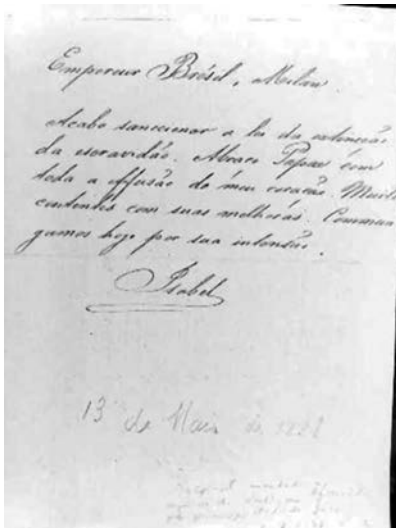 Empereur Brésil, Milan.
Acabo sanccionar a lei da extincção
da escravidão. Abraço Papae com
toda a effusão do meu coração. Muito
contentes com suas melhoras. Commun
gamos hoje por sua intenção.
Isabel
13 de Maio de 1888